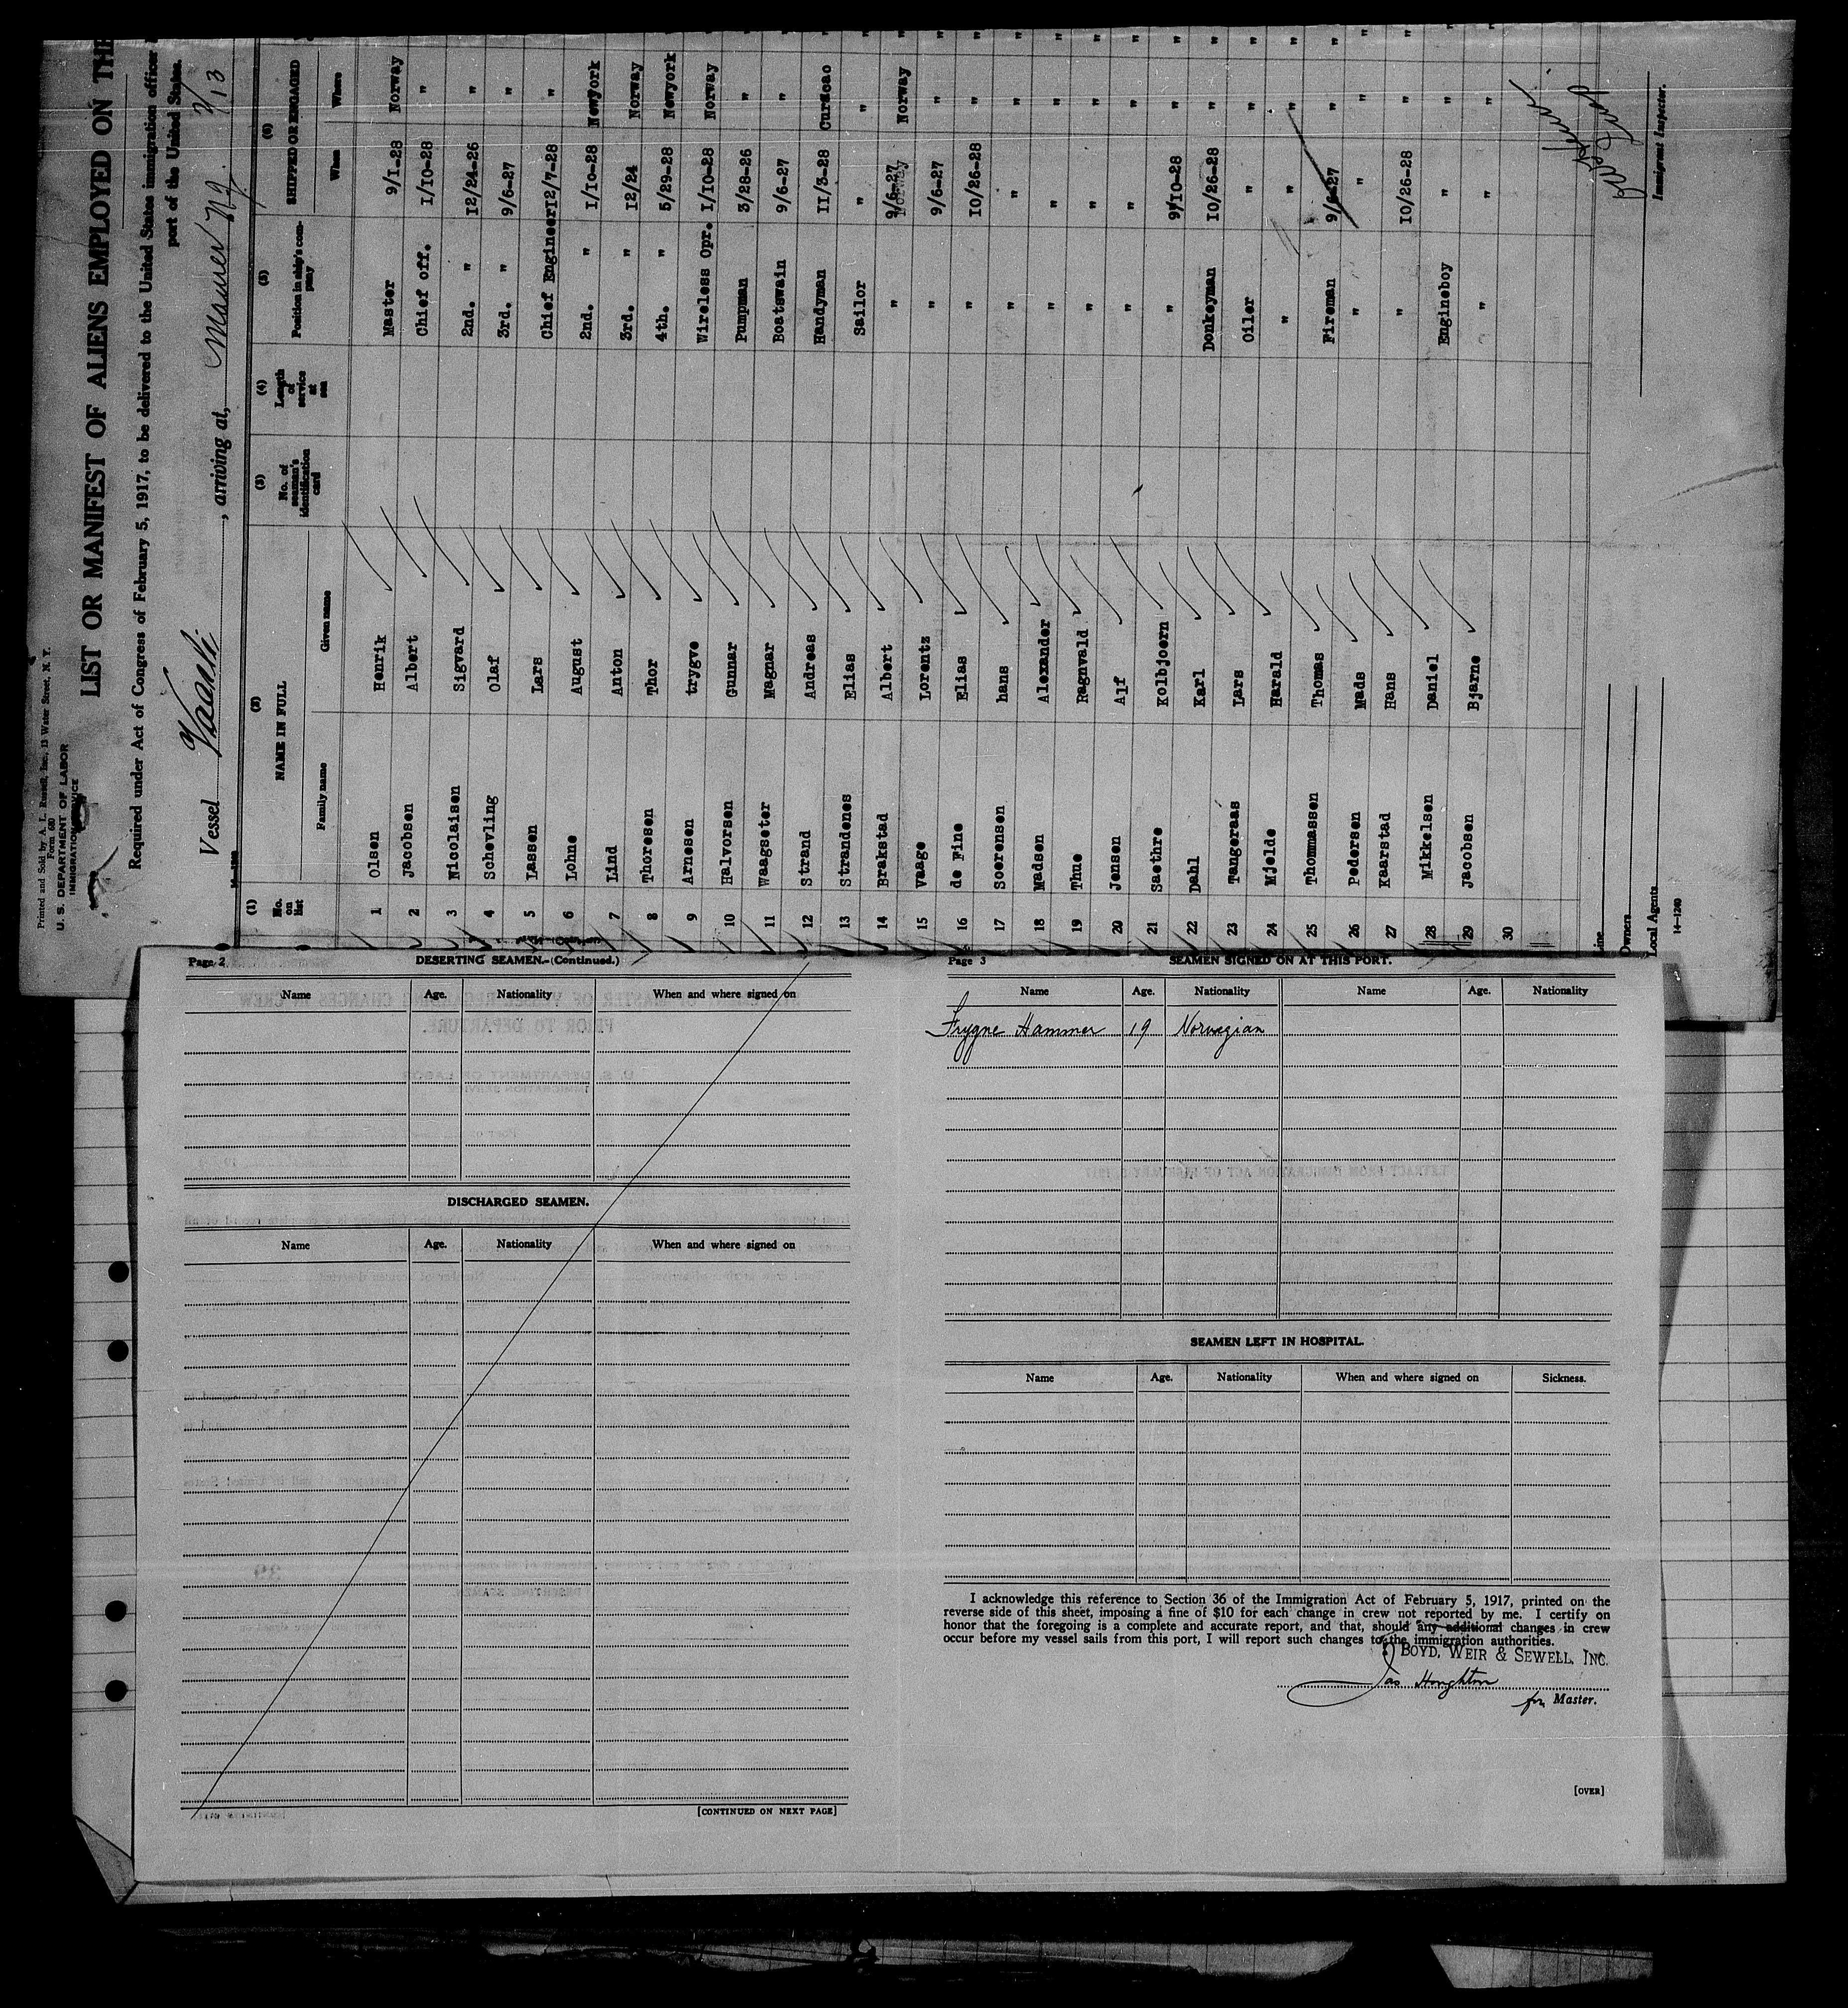 Printed and Sold by A. L. Russell, Inc., 13 Water Street, N. Y.
Form 680
U. S. DEPARTMENT OF LABOR
IMMIGRATION SERVICE
LIST OR MANIFEST OF ALIENS EMPLOYED ON THE
Required under Act of Congress of February 5, 1917, to be delivered to the United States immigration officer
port of the United States.
Vessel , arriving at, N.J. 2/13
(1) (2) (3) (4) (5) (6)
No. on list NAME IN FULL No. of seaman's identification card Length of service at sea Position in ship's company SHIPPED OR ENGAGED
Family name Given name When Where
1 Olsen Henrik Master 9/1-28 Norway
2 Jacobsen Albert Chief off. 1/10-28 "
3 Nicolaisen Sigvard 2nd. " 12/24-26 "
4 Schevling Olaf 3rd. " 9/6-27 "
5 Lassen Lars Chief Engineer 12/7-28 "
6 Lohne August 2nd. " 1/10-28 Newyork
7 Lind Anton 3rd. " 12/24 Norway
8 Thoresen Thor 4th. " 5/29-28 Newyork
9 Arnesen trygve Wireless Opr. 1/10-28 Norway
10 Halvorsen Gunnar Pumpman 3/28-26 "
11 Waagseter Magnar Boatswain 9/6-27 "
12 Strand Andreas Handyman 11/3-28 Curacao
13 Strandenes Elias Sailor " "
14 Brakstad Albert " 9/6-27 Norway
15 Vaage Lorentz " 9/6-27 "
16 de Fine Elias " 10/26-28 "
17 Soerensen hans " " "
18 Madsen Alexander " " "
19 Thue Ragnvald " " "
20 Jensen Alf " " "
21 Saethre Kolbjoern " 9/10-28 "
22 Dahl Karl Donkeyman 10/26-28 "
23 Tangeraas Lars Oiler " "
24 Mjelde Harald " " "
25 Thommassen Thomas Fireman 9/6-27 "
26 Pedersen Mads " " "
27 Kaarstad Hans " 10/26-28 "
28 Mikkelsen Daniel Engineboy " "
29 Jacobsen Bjarne " " "
30
Line
Owners
Local Agents
14-1240
Immigrant Inspector.
Page 2
DESERTING SEAMEN.-(Continued.)
Name Age. Nationality When and where signed on
DISCHARGED SEAMEN.
Name Age. Nationality When and where signed on
[CONTINUED ON NEXT PAGE]
Page 3
SEAMEN SIGNED ON AT THIS PORT.
Name Age. Nationality Name Age. Nationality
Trygne Hammer 19 Norwegian
SEAMEN LEFT IN HOSPITAL.
Name Age. Nationality When and where signed on Sickness.
I acknowledge this reference to Section 36 of the Immigration Act of February 5, 1917, printed on the
reverse side of this sheet, imposing a fine of $10 for each change in crew not reported by me. I certify on
honor that the foregoing is a complete and accurate report, and that, should any additional changes in crew
occur before my vessel sails from this port, I will report such changes to the immigration authorities.
BOYD, WEIR & SEWELL, INC.
Jas Houghton
for Master.
[OVER]